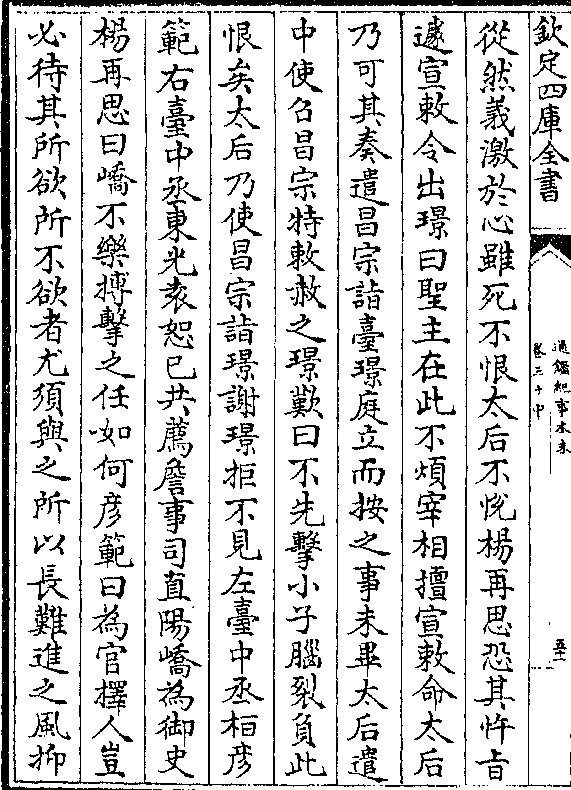 欽定四庫全書
通鑑紀事本末
卷三十中
從然義激於心雖死不恨太后不悅楊再思恐其忤旨
遽宣敕令出璟曰聖主在此不煩宰相擅宣敕命太后
乃可其奏遣昌宗詣臺璟庭立而按之事未畢太后遣
中使召昌宗特敕赦之璟歎曰不先擊小子腦裂負此
恨矣太后乃使昌宗詣璟謝璟拒不見左臺中丞桓彦
範右臺中丞東光袁恕已共薦詹事司直陽嶠為御史
楊再思曰嶠不樂搏擊之任如何彦範曰為官擇人豈
必待其所欲所不欲者尤須與之所以長難進之風抑